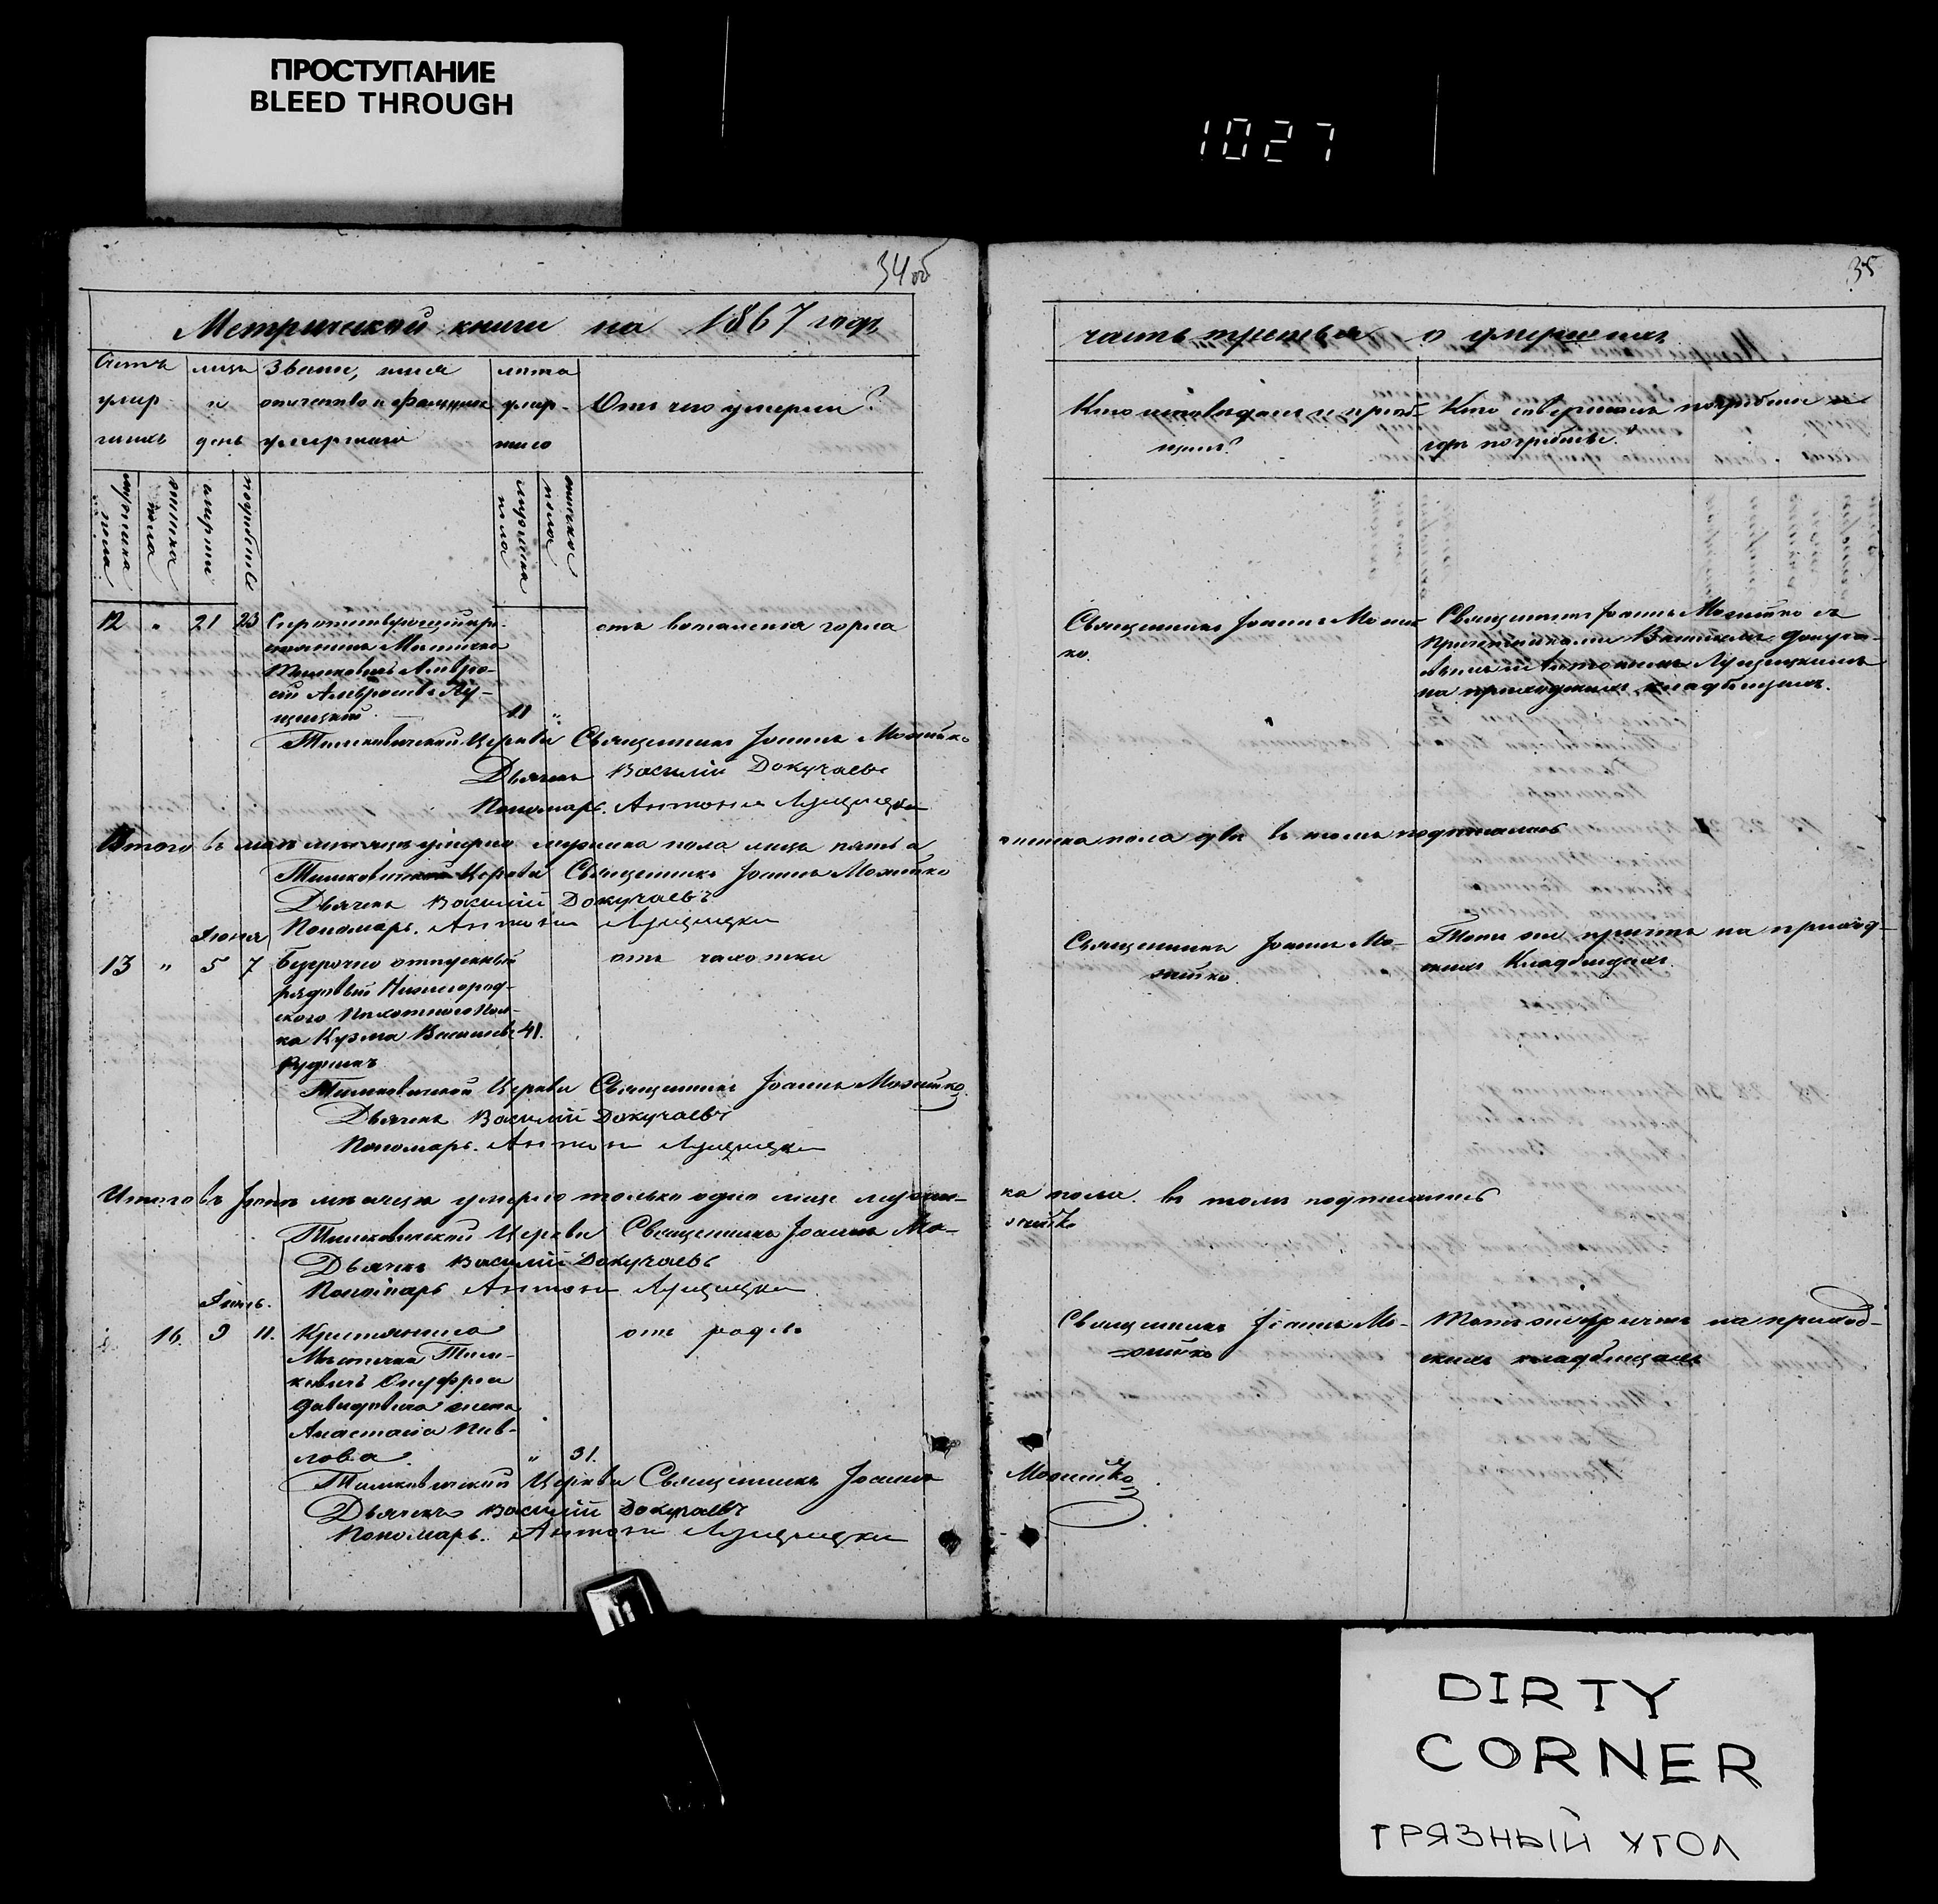 ПРОСТУПАНИЕ
BLEED THROUGH
1027
34об
35
Метрической книги на 1867 годъ
часть третья о умершихъ
Счетъ умер-шихъ
мѣсяцъ и день
Званіе, имя
отчество и фамилія
умершаго
лѣта
умер-
шаго
Отъ чего умеръ?
Кто исповѣдалъ и пріоб-
щилъ?
Кто совершалъ погребеніе и
гдѣ погребены?
мужеска пола
женска пола
смерти
погребенія
мужеска пола
женска пола
12 " 21 23
мѣстечка
Тимковичъ Амвро-
сій Амвросіевъ Лу-
щицкій. 11 "
отъ воспаленія горла
Священникъ Іоаннъ Можей-
ко.
Священникъ Іоаннъ Можейко съ
Причетниками Василіемъ Докуча-
евымъ и Антоніемъ Лущицкимъ
на приходскихъ кладбищахъ.
Тимковичской Церкви Священникъ Іоаннъ Можейко
Дьячекъ Василій Докучаевъ
Пономарь. Антоній Лущицки
Итого въ маѣ мѣсяцѣ умерло мужеска пола лицъ пять а
женска пола двѣ въ томъ подписались
Тимковичской Церкви Священникъ Іоаннъ Можейко
Дьячекъ Василій Докучаевъ
Пономарь. Антоній Лущицки
Іюня
13 " 5 7 Безсрочно отпускный
рядовый Нижегород-
скаго Пѣхотнаго Пол-
ка Кузма Васильевъ 41.
Рудникъ
отъ чахотки
Священникъ Іоаннъ Мо-
жейко
Тотъ же причтъ на приход-
скихъ Кладбищахъ.
Тимковичской Церкви Священникъ Іоаннъ Можейко.
Дьячекъ Василій Докучаевъ
Пономарь. Антони Лущицки
Итого въ Іюнѣ мѣсяцѣ умерло только одно лице мужес-
ка пола. въ томъ подписались
Тимковичской Церкви Священникъ Іоаннъ Мо-
жейко
Дьячекъ Василій Докучаевъ
Пономарь Антони Лущицки
Іюль.
16. 9 11. Крестьянина
Мѣстечка Тим-
ковичъ Онуфрія
Давидовича жена
Анастасія Пав-
лова. " 31.
отъ родовъ
Священникъ Іоаннъ Мо-
жейко
Тотъ же причтъ на приход-
скихъ кладбищахъ
Тимковичской Церкви Священникъ Іоаннъ
Можейко
Дьячекъ Василій Докучаевъ
Пономарь. Антони Лущицки
DIRTY
CORNER
ГРЯЗНЫЙ УГОЛ